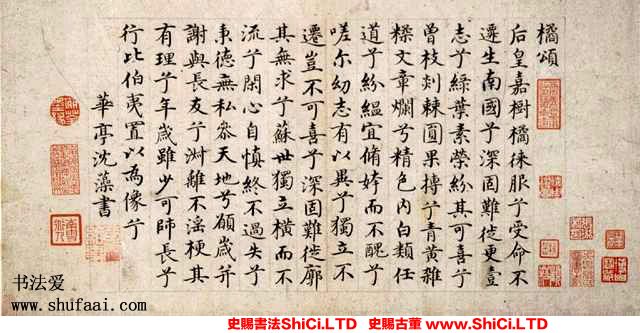 橘頌
后皇嘉樹橘徠服兮受命不
遷生南國兮深固難徙更壹
志兮緑葉素榮紛其可喜兮
曾枝剡棘圓果摶兮青黄雜
糅文章爛兮精色内白類任
道兮紛緼宜脩姱而不醜兮
嗟尔幼志有以異兮獨立不
遷豈不可喜兮深固難徙廓
其無求兮蘇世獨立横而不
流兮閑心自慎終不過失兮
秉德無私叅天地兮願歲并
謝與長友兮淑離不滛梗其
有理兮年歲雖少可師長兮
行比伯夷置以爲像兮
華亭沈藻書
书法爱
www.shufaai.com
史賜書法ShiCi.LTD 史賜古董 www.ShiCi.LTD